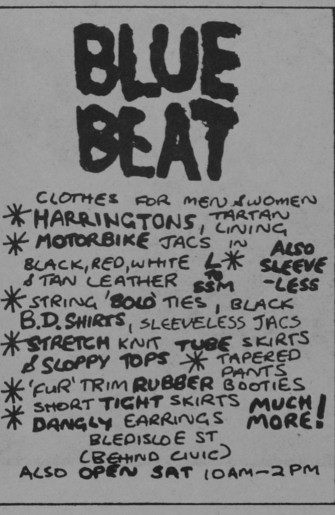 BLUE
BEAT
CLOTHES FOR MEN & WOMEN
* HARRINGTONS, TARTAN LINING
* MOTORBIKE JACS IN
BLACK, RED, WHITE
& TAN LEATHER
L TO SSM
* ALSO SLEEVE-LESS
* STRING 'BOLO' TIES, BLACK
B.D. SHIRTS, SLEEVELESS JACS
* STRETCH KNIT TUBE SKIRTS
& SLOPPY TOPS * TAPERED PANTS
* 'FUR' TRIM RUBBER BOOTIES
* SHORT TIGHT SKIRTS
* DANGLY EARRINGS
MUCH MORE!
BLEDISLOE ST
(BEHIND CIVIC)
ALSO OPEN SAT 10AM-2PM